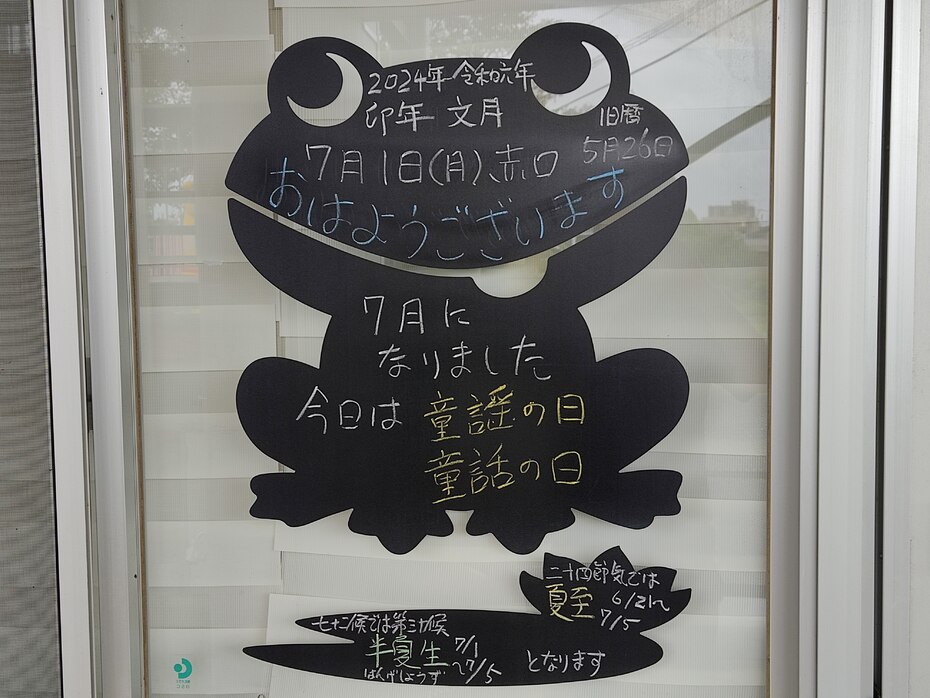 2024年 令和六年
卯年 文月
旧暦
5月26日
7月1日(月)赤口
おはようございます
7月に
なりました
今日は 童謡の日
童話の日
二十四節気では
夏至 6/21~
7/5
七十二候では第三十候
半夏生 7/1
~7/5
はんげしょうず
となります